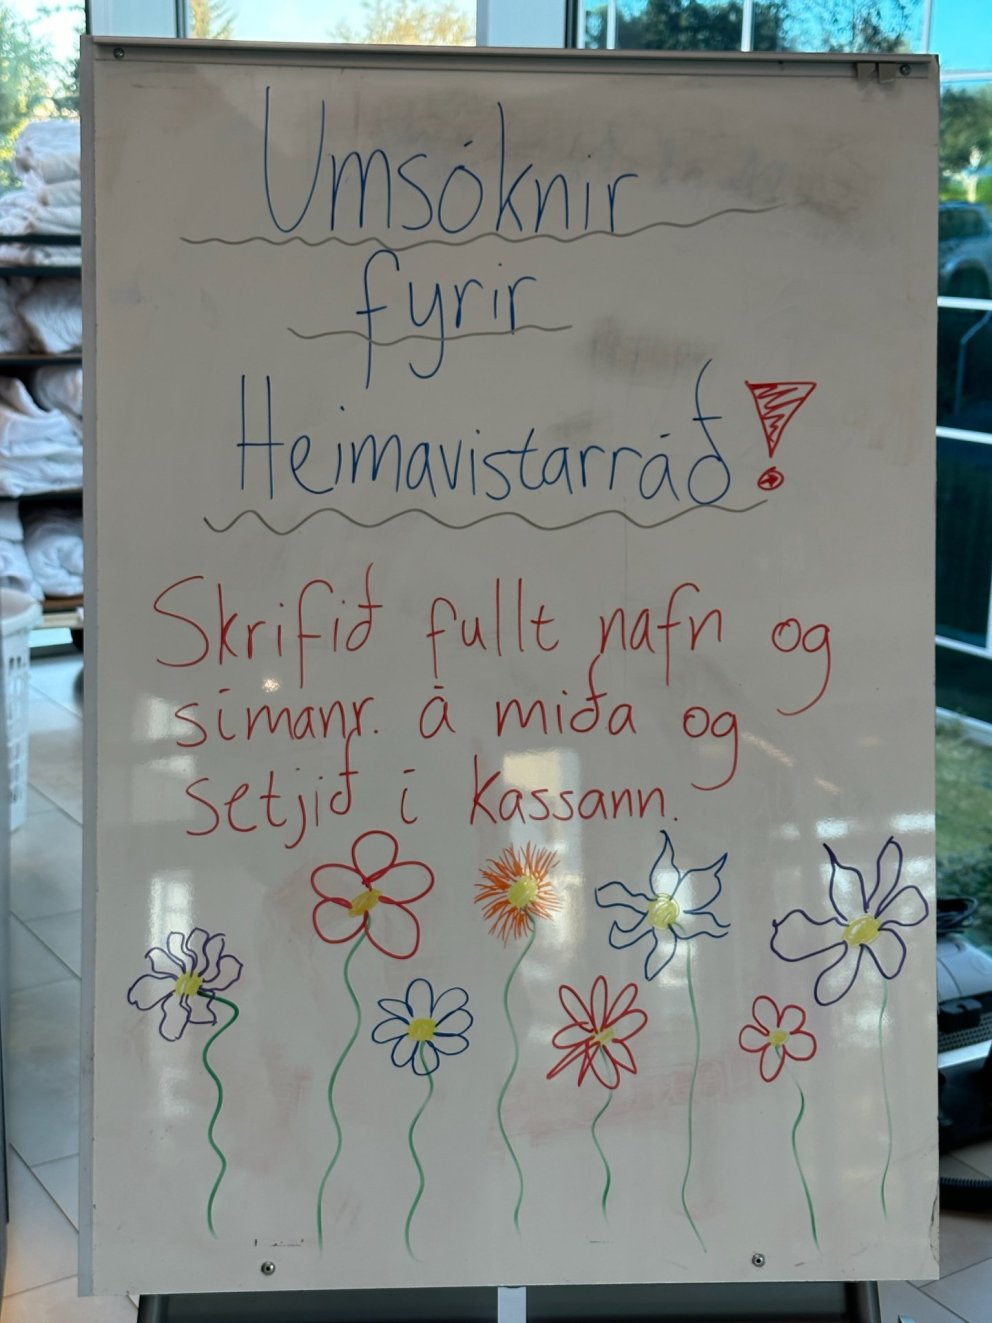 Umsóknir
fyrir
Heimavistarráð!
Skrifið fullt nafn og
símanr. á miða og
setjið í kassann.